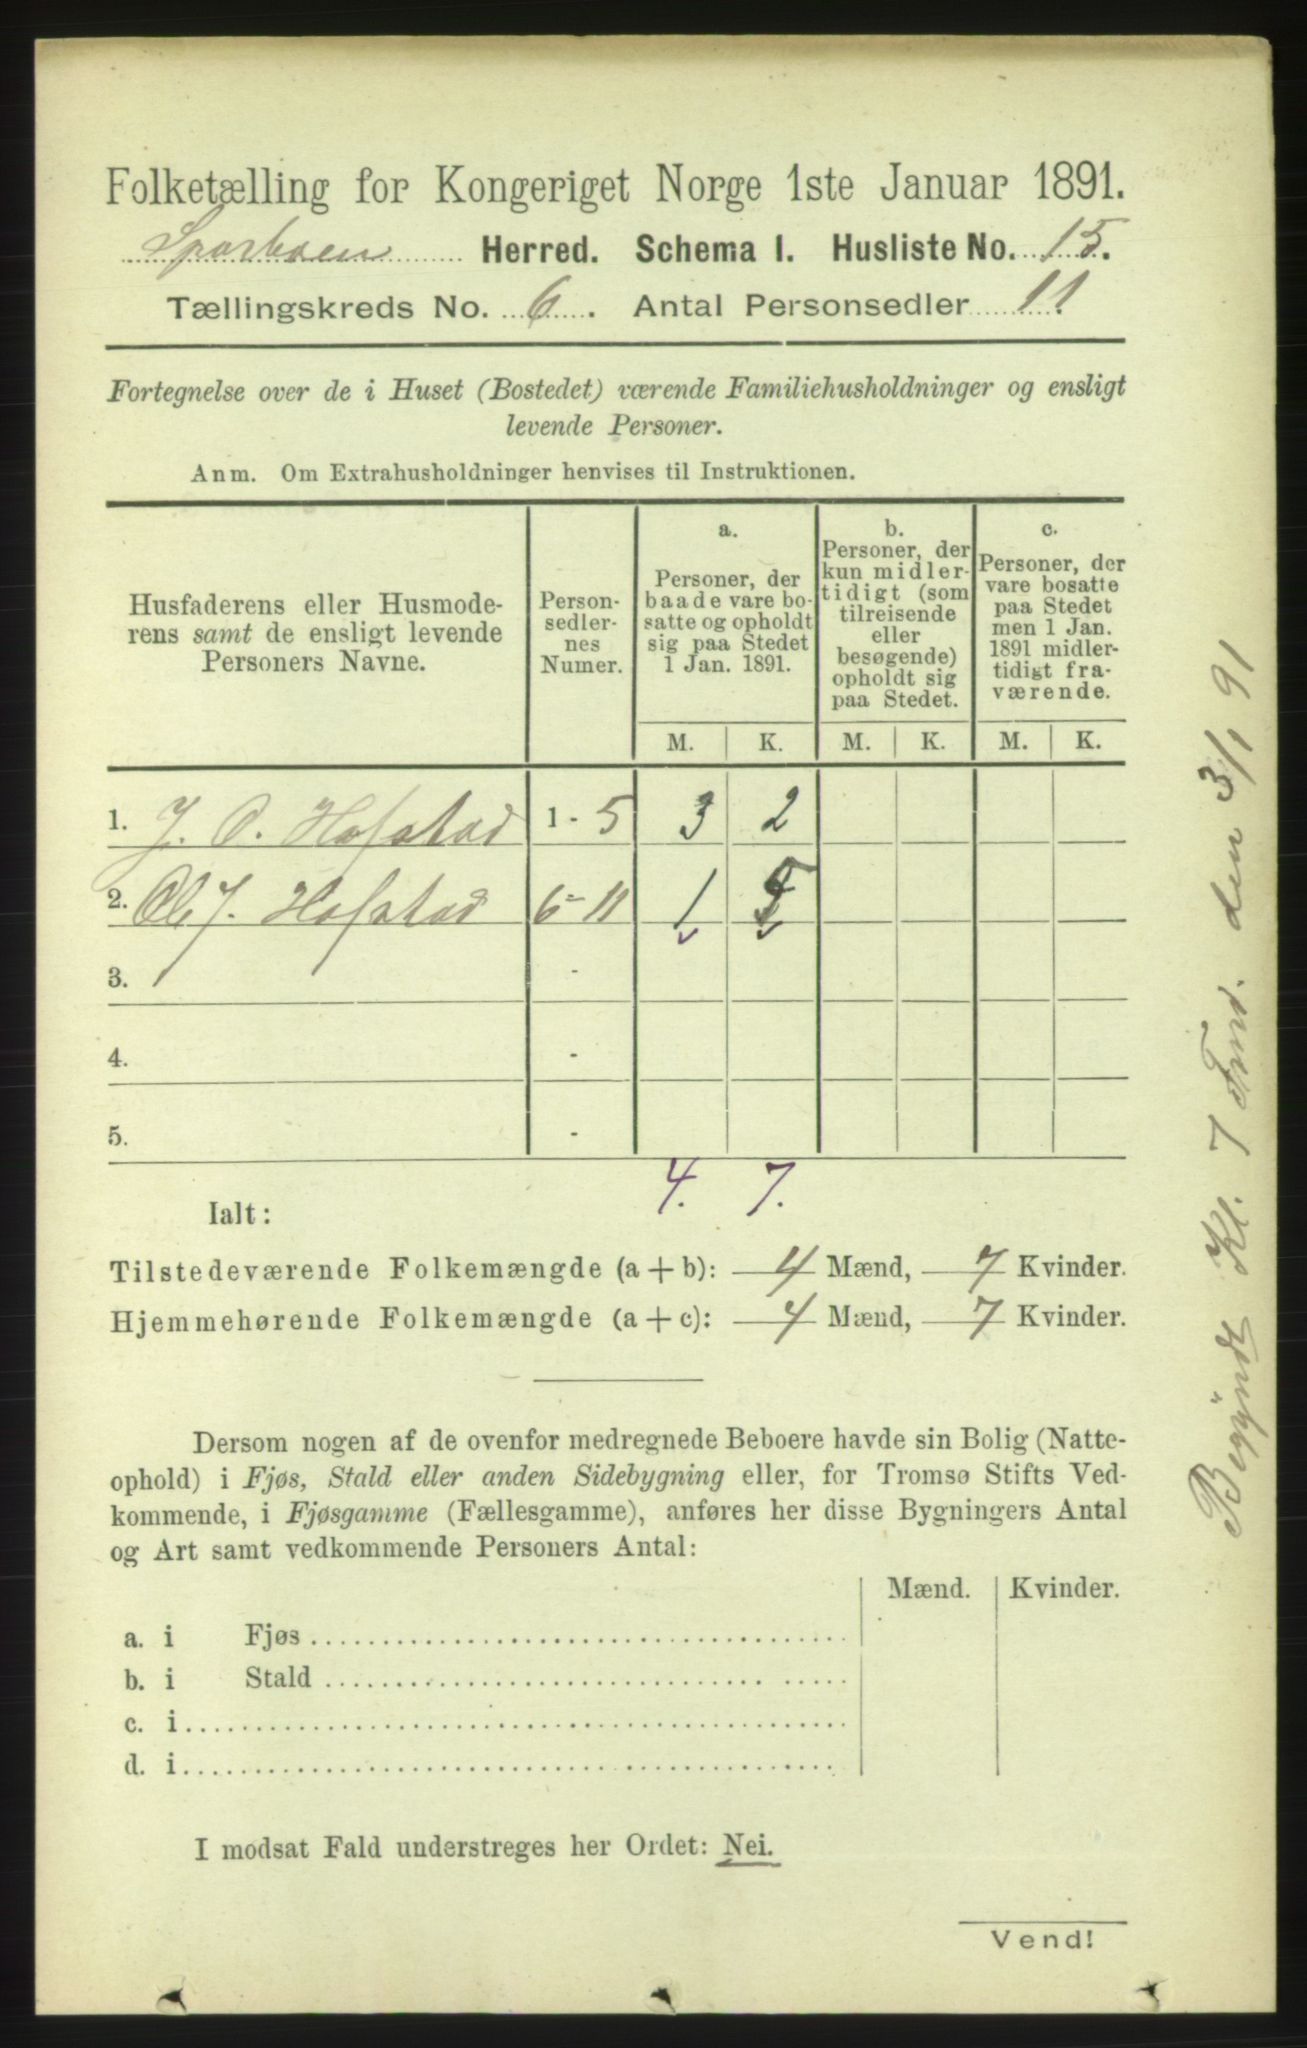 Folketælling for Kongeriget Norge 1ste Januar 1891.
Sparboen Herred. Schema I. Husliste No. 15.
Tællingskreds No. 6. Antal Personsedler 11.
Fortegnelse over de i Huset (Bostedet) værende Familiehusholdninger og ensligt
levende Personer.
Anm. Om Extrahusholdninger henvises til Instruktionen.
Husfaderens eller Husmode-
rens samt de ensligt levende
Personers Navne.
Person-
sedler-
nes
Numer.
a.
Personer, der
baade vare bo-
satte og opholdt
sig paa Stedet
1 Jan. 1891.
b.
Personer, der
kun midler-
tidigt (som
tilreisende
eller
besøgende)
opholdt sig
paa Stedet.
c.
Personer, der
vare bosatte
paa Stedet
men 1 Jan.
1891 midler-
tidigt fra-
værende.
M. K. M. K. M. K.
1. J. O. Hofstad 1 - 5 3 2
2. Ole J. Hofstad 6 - 11 1 5
3. -
4. -
5. -
4. 7.
Ialt:
Tilstedeværende Folkemængde (a + b): 4 Mænd, 7 Kvinder.
Hjemmehørende Folkemængde (a + c): 4 Mænd, 7 Kvinder.
Dersom nogen af de ovenfor medregnede Beboere havde sin Bolig (Natte-
ophold) i Fjøs, Stald eller anden Sidebygning eller, for Tromsø Stifts Ved-
kommende, i Fjøsgamme (Fællesgamme), anføres her disse Bygningers Antal
og Art samt vedkommende Personers Antal:
Mænd. Kvinder.
a. i Fjøs
b. i Stald
c. i
d. i
I modsat Fald understreges her Ordet: Nei.
Vend!
Begyndt Kl. 7 Fmd. den 3/1 91